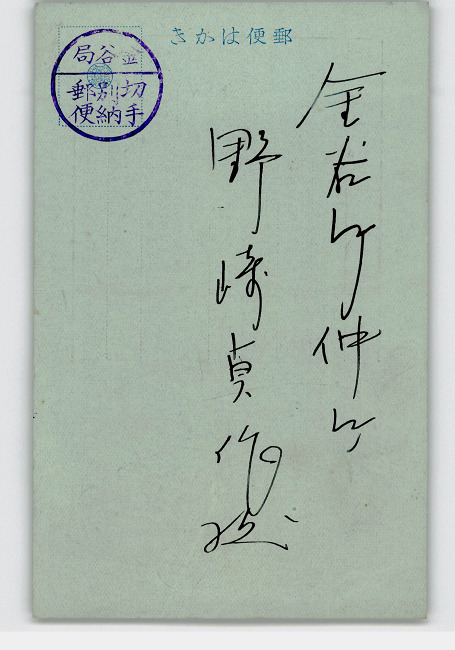 きかは便郵
局谷金
切手
別納
郵便
金谷町仲町
野崎真作様